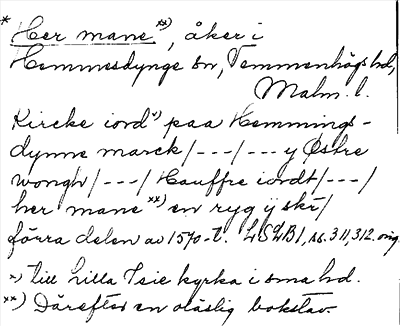 * Her mane xx), åker i
Hemmesdynge sn, Vemmenhögs hd,
Malm. l.
Kircke iord x) paa Hemmings-
dynne marck/---/--- y Østre
wongh/---/Hauffre iordt/---/
her mane xx) en ryg ÿ ski/
förra delen av 1570-t. LSLB1, ss. 311, 312. orig.
x) till Lilla Isie kyrka i sma hd.
xx) Därefter en oläslig bokstav.